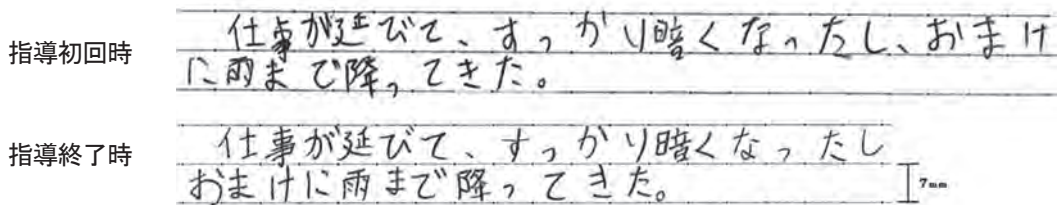 指導初回時
仕事が延びて、すっかり暗くなったし、おまけ
に雨まで降ってきた。
指導終了時
仕事が延びて、すっかり暗くなったし
おまけに雨まで降ってきた。
7mm